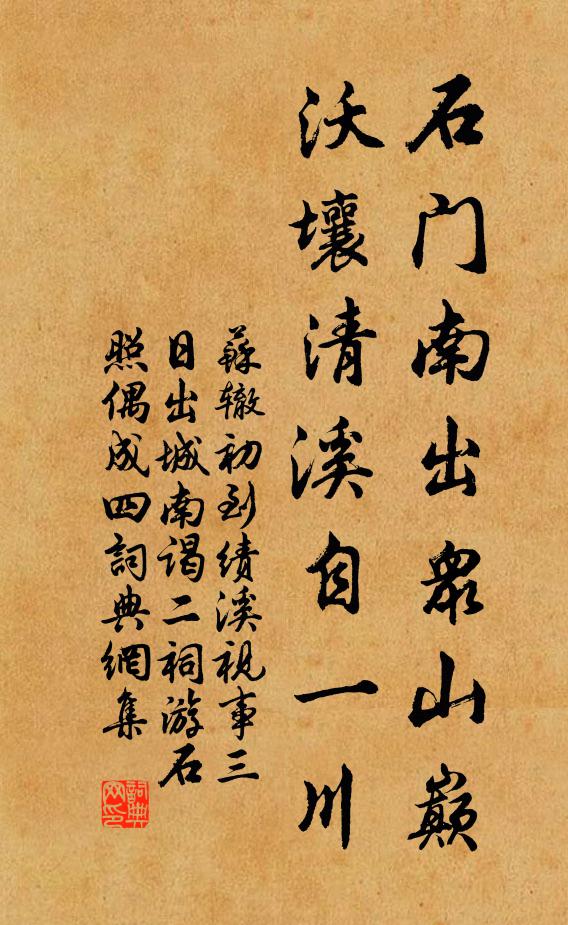 石门南出眾山巔
沃壤清溪自一川
蘇辙初到绩溪視事三
日出城南谒二祠游石
照偶成四詞典網集
詞典
网印